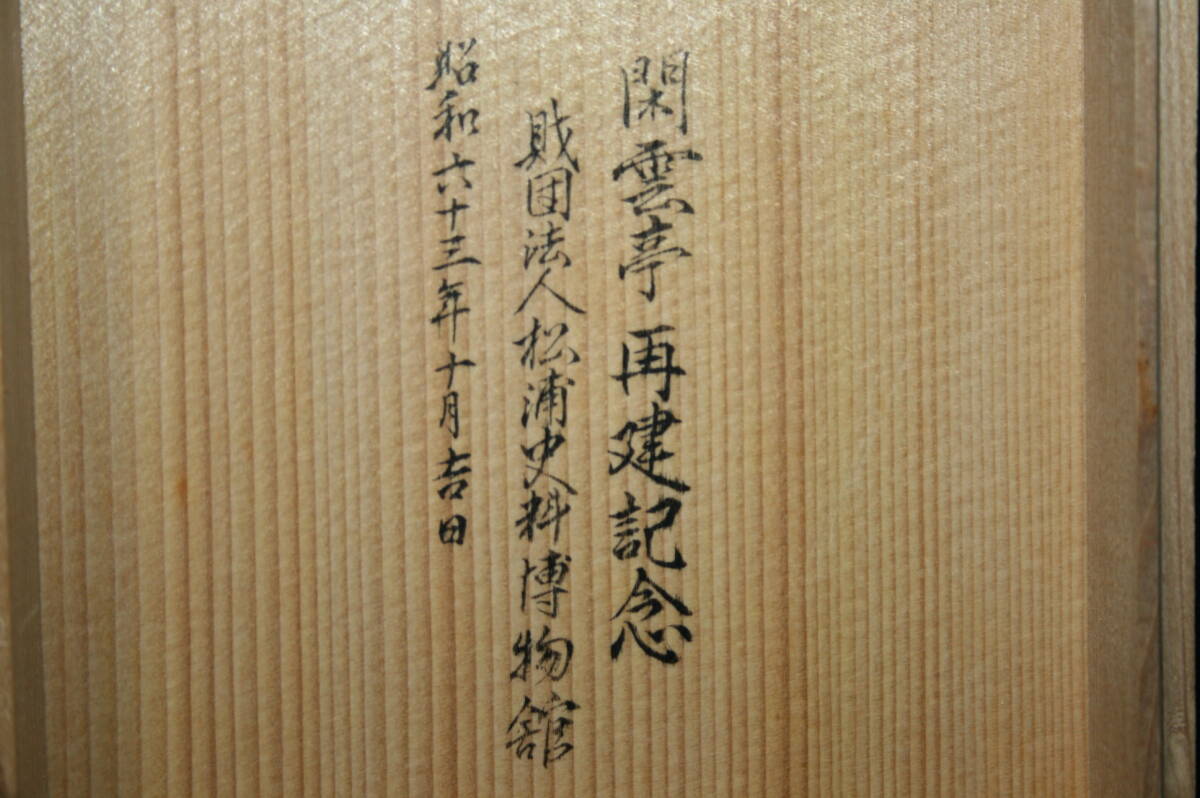 閑雲亭 再建記念
財団法人松浦史料博物館
昭和六十三年十月吉日